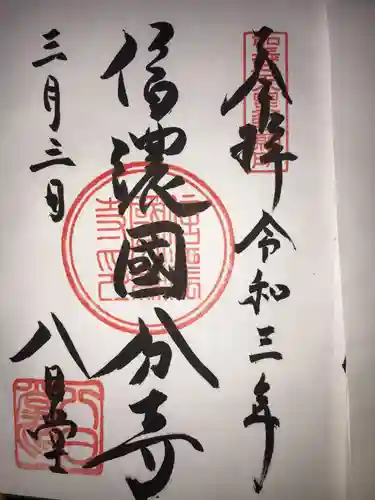 奉拝 令和三年
信濃國分寺
三月三日
八日堂